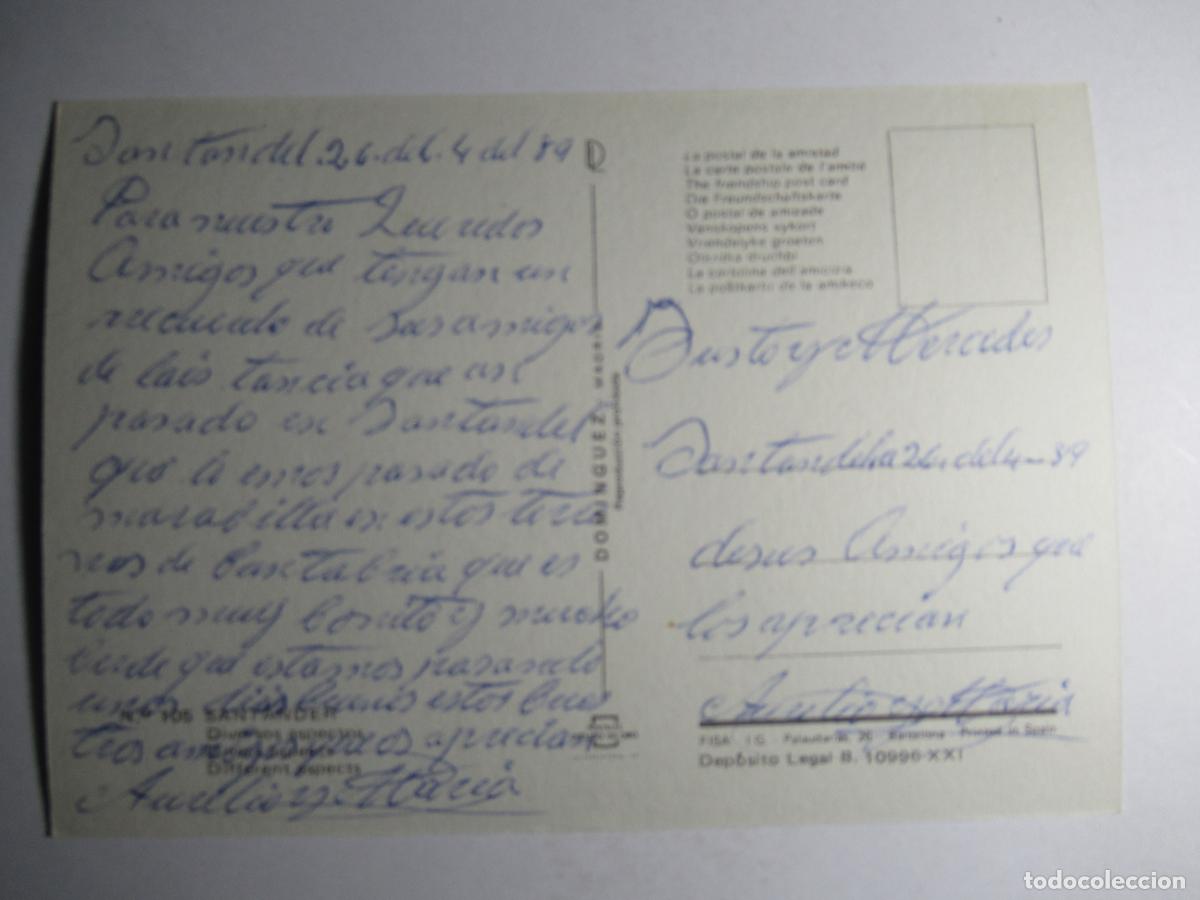 Santandel 26 del 4 del 89
Para nuestro Queridos
Amigos que tengan un
recuerdo de sus amigos
de la istancia que an
pasado en Santandel
que lo emos pasado de
marabilla en estos terre
nos de Cantabria que es
todo muy bonito y mucho
berde que estamos pasando
unos dias buenos estos bues
tros amigos que os aprecian
Aurelio y Maria
N.º 105 SANTANDER
Diversos aspectos
Different aspects
D
DOMINGUEZ - MADRID
Reproducción prohibida
La postal de la amistad
La carte postale de l'amitié
The friendship post card
Die Freundschaftskarte
O postal de amizade
Venskapens vykort
Vriendelijke groeten
La cartolina dell'amicizia
La poŝtkarto de la amikeco
Justo y Mercedes
Santandel a 26 del 4 - 89
de sus Amigos que
los aprecian
Aurelio y Maria
FISA I.G. Palaudarias, 26 - Barcelona - Printed in Spain
Depósito Legal B. 10996-XXI
todocoleccion